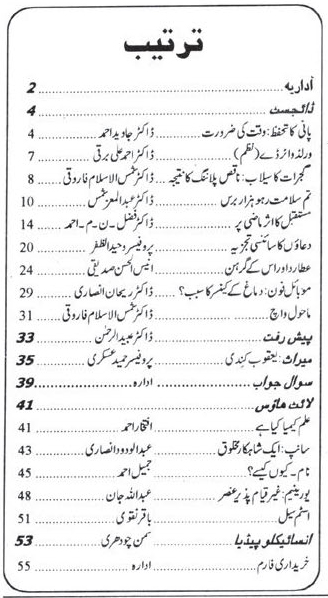 ترتیب
اداریہ 2
ڈائجسٹ 4
پانی کا تحفظ: وقت کی ضرورت ڈاکٹر جاوید احمد 4
ورلڈ واٹر ڈے (نظم) ڈاکٹر احمد علی برقی 7
گجرات کا سیلاب: ناقص پلاننگ کا نتیجہ ڈاکٹر شمس الاسلام فاروقی 8
تم سلامت رہو ہزار برس ڈاکٹر عبدالمعز شمس 10
مستقبل کا اثر ماضی پر ڈاکٹر فضل ن۔م۔احمد 14
دعاؤں کا سائنسی تجزیہ پروفیسر وحید الظفر 20
عطارد اور اس کے گرہن انیس الحسن صدیقی 24
موبائل فون: دماغ کے کینسر کا سبب؟ ڈاکٹر ریحان انصاری 29
ماحول واچ ڈاکٹر شمس الاسلام فاروقی 31
پیش رفت ڈاکٹر عبیدالرحمٰن 33
میراث: یعقوب کندی پروفیسر حمید عسکری 35
سوال جواب ادارہ 39
لائٹ ہاؤس 41
علم کیمیا کیا ہے افتخار احمد 41
سانپ: ایک شاہکار مخلوق عبدالودود انصاری 43
نام۔کیوں کیسے؟ جمیل احمد 45
یورینیم: غیر قیام پذیر عنصر عبداللہ جان 48
اسٹم سیل باقر نقوی 51
انسائیکلوپیڈیا سمن چودھری 53
خریداری فارم ادارہ 55